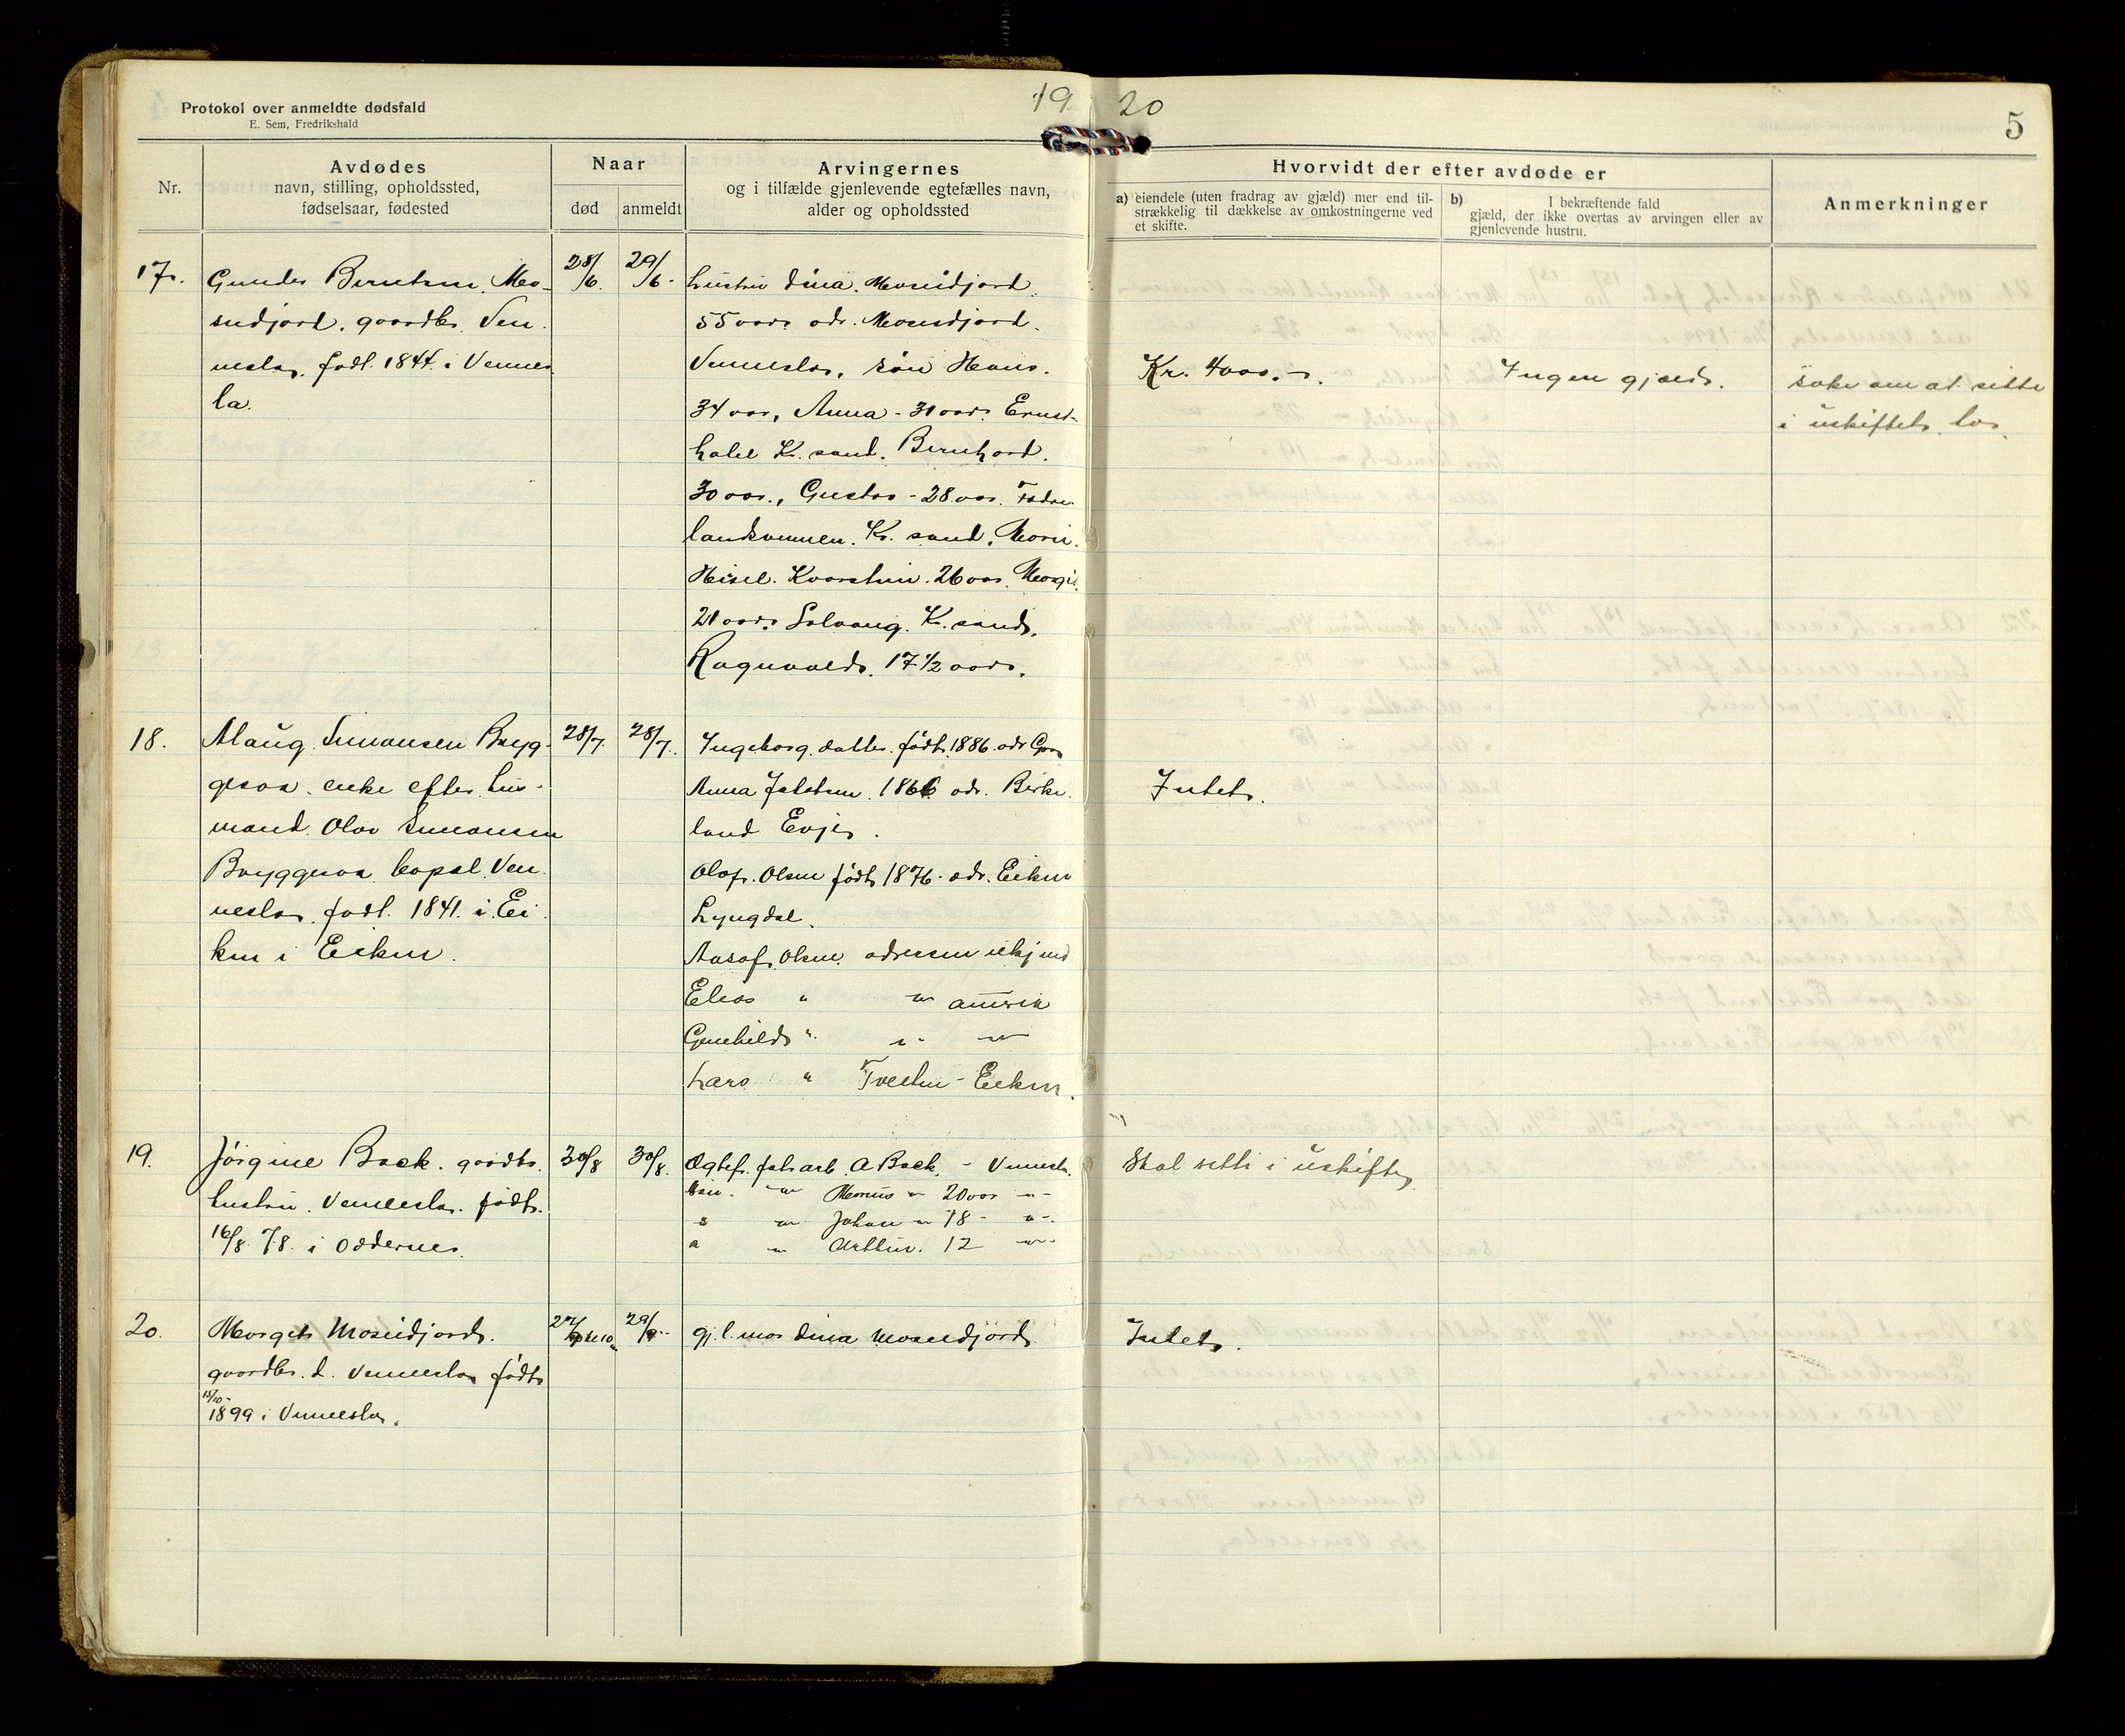 Protokol over anmeldte dødsfald
E. Sem, Fredrikshald
19 20
5
Nr.
Avdødes
navn, stilling, opholdssted,
fødselsaar, fødested
Naar
død
anmeldt
Arvingernes
og i tilfælde gjenlevende egtefælles navn,
alder og opholdssted
Hvorvidt der efter avdøde er
a) eiendele (uten fradrag av gjæld) mer end til-
strækkelig til dækkelse av omkostningerne ved
et skifte.
b) I bekræftende fald
gjæld, der ikke overtas av arvingen eller av
gjenlevende hustru.
Anmerkninger
17.
Gunder Berntsen. Mo-
sidjord. gaardbr. Ven
nesla. født. 1844. i Vennes
la.
28/6.
29/6.
hustru Dina. Moseidjord.
55 aar. adr. Moseidjord.
Vennesla, søn Hans.
34 aar, Anna - 31 aar.
K. sand. Bernhard.
30 aar., Gustav - 28 aar. Fædre
landsvennen. Kr. sand. Marie
Heisel. 26 aar. Margit
21 aar. Solvang. K. sand.
Ragnvald. 17 1/2 aar.
Kr. 4000.-.
Ingen gjæld.
søke om at sitte
i uskiftet bo
18.
Alaug Simonsen Bryg-
gesaa. enke efter hus-
mand. Olav Simonsen
Bryggesaa bopal. Ven
nesla. født. 1841. i. Ei
ken i Eiken.
28/7.
28/7.
Ingeborg. datter. født. 1886. adr
Anna 1866 adr. Birke
land Evje.
Olaf. Olsen født 1876. adr. Eiken
Lyngdal.
Aasof Olsen. adressen ukjend
Elias " " amerik
Gunhild " " "
Lars " Tveiten - Eiken.
Intet.
19.
Jörgine Back. gaardbr.
hustru. Vennesla. født.
16/8. 78. i Oddernes.
30/8
30/8.
Egtef. fabr arb. A Back. - Vennesla.
søn. " " 20 aar "
" " Johan " 18 - "
" " Arthur. 12 "
Skal sitte i uskifte
20.
Margit Moseidjord.
gaardbr. d. Vennesla født
15/10-
1899 i Vennesla.
27/9
29/9
gj. l. mor Dina Moseidjord
Intet.